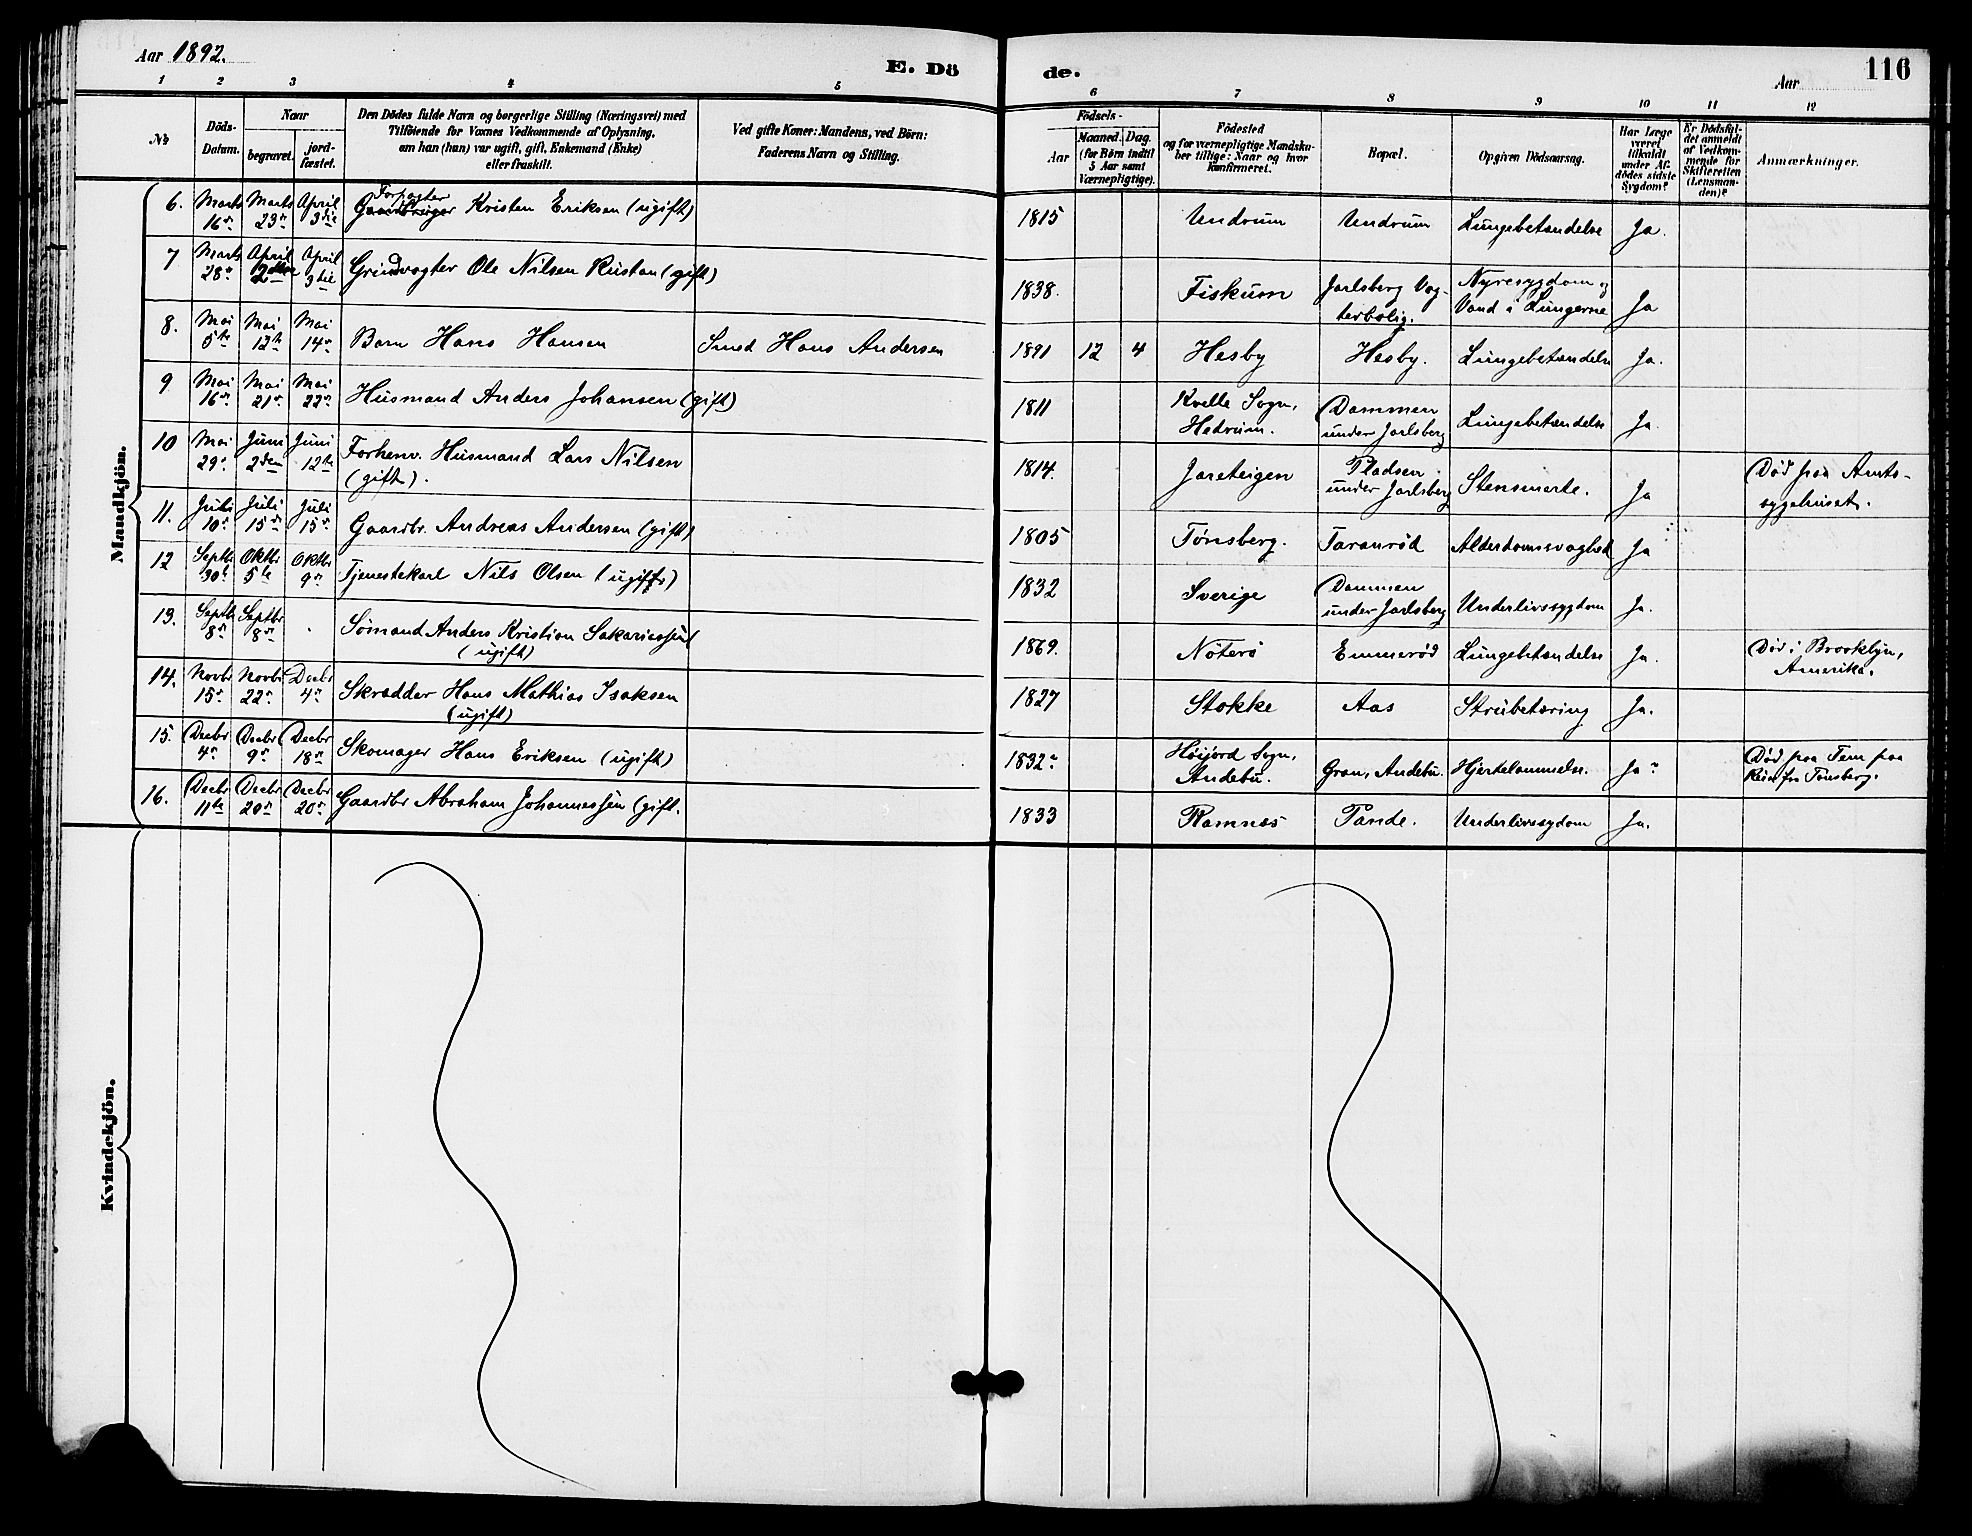 Aar 1892.
E. Dö
de.
Aar
116
1 2 3 4 5
6 7 8 9 10 11 12
№
Döds-Datum.
Naar
begravet.
jord-fæstet.
Den Dödes fulde Navn og borgerlige Stilling (Næringsvei) med
Tilföiende for Voxnes Vedkommende af Oplysning,
om han (hun) var ugift, gift, Enkemand (Enke)
eller fraskilt.
Ved gifte Koner: Mandens, ved Börn:
Faderens Navn og Stilling.
Födsels-
Aar
Maaned. Dag.
(for Börn indtil
5 Aar samt
Værnepligtige).
Födested
og for værnepligtige Mandska-
ber tillige: Naar og hvor
konfirmeret.
Bopæl.
Opgiven Dödsaarsag.
Har Læge
været
tilkaldt
under Af-
dödes sidste
Sygdom?
Er Dödsfal-
det anmeldt
af Vedkom-
mende for
Skifteretten
(Lensman-
den)?
Anmærkninger.
Mandkjön.
6. Marts 16de Marts 23de April 3die Forpagter Gaardbruger Kristen Eriksen (ugift) 1815 Undrum Undrum Lungebetændelse Ja.
7 Marts 28de April 2den April 3die Grindvogter Ole Nilsen Rustan (gift) 1838. Fiskum Jarlsberg Vog-
terbolig. Nyresygdom og
Vand i Lungerne Ja
8. Mai 5te Mai 12te Mai 14de Barn Hans Hansen Smed Hans Andersen 1891 12 4 Hesby Hesby. Lungebetændelse Ja.
9. Mai 16de Mai 21de Mai 22de Husmand Anders Johansen (gift) 1811 Kvelle Sogn,
Hedrum. Dammen
under Jarlsberg Lungebetændelse Ja.
10 Mai 29de Juni 2den Juni 12te Forhenv. Husmand Lars Nilsen
(gift). 1814. Jareteigen Pladsen
under Jarlsberg Stensmerte. Ja Död paa Amts-
sygehuset.
11. Juli 10de Juli 15de Juli 15de Gaardbr. Andreas Andersen (gift) 1805 Tönsberg. Taranröd Alderdomssvaghed Ja
12 Septbr 30te Oktbr 5te Oktbr 9de Tjenestekarl Nils Olsen (ugift) 1832 Sverige Dammen
under Jarlsberg Underlivssygdom Ja.
13. Septbr 8de Septbr 8de Sömand Anders Kristian Sakariassen
(ugift) 1869. Nöterö Emmeröd Lungebetændelse Ja. Död i Brooklyn,
Amerika.
14. Novbr 15de Novbr 22de Decbr 4de Skrædder Hans Mathias Isaksen
(ugift) 1827 Stokke Aas Strubetæring Ja.
15. Decbr 4de Decbr 9de Decbr 18de Skomager Hans Eriksen (ugift) 1832 Höijord Sogn,
Andebu. Gran, Andebu. Hjertelammelse. Ja Död paa Fem paa
Reise fra Tönsberg.
16. Decbr 11te Decbr 20de Decbr 20de Gaardbr Abraham Johannessen (gift. 1833 Ramnes Tande. Underlivssygdom Ja.
Kvindekjön.